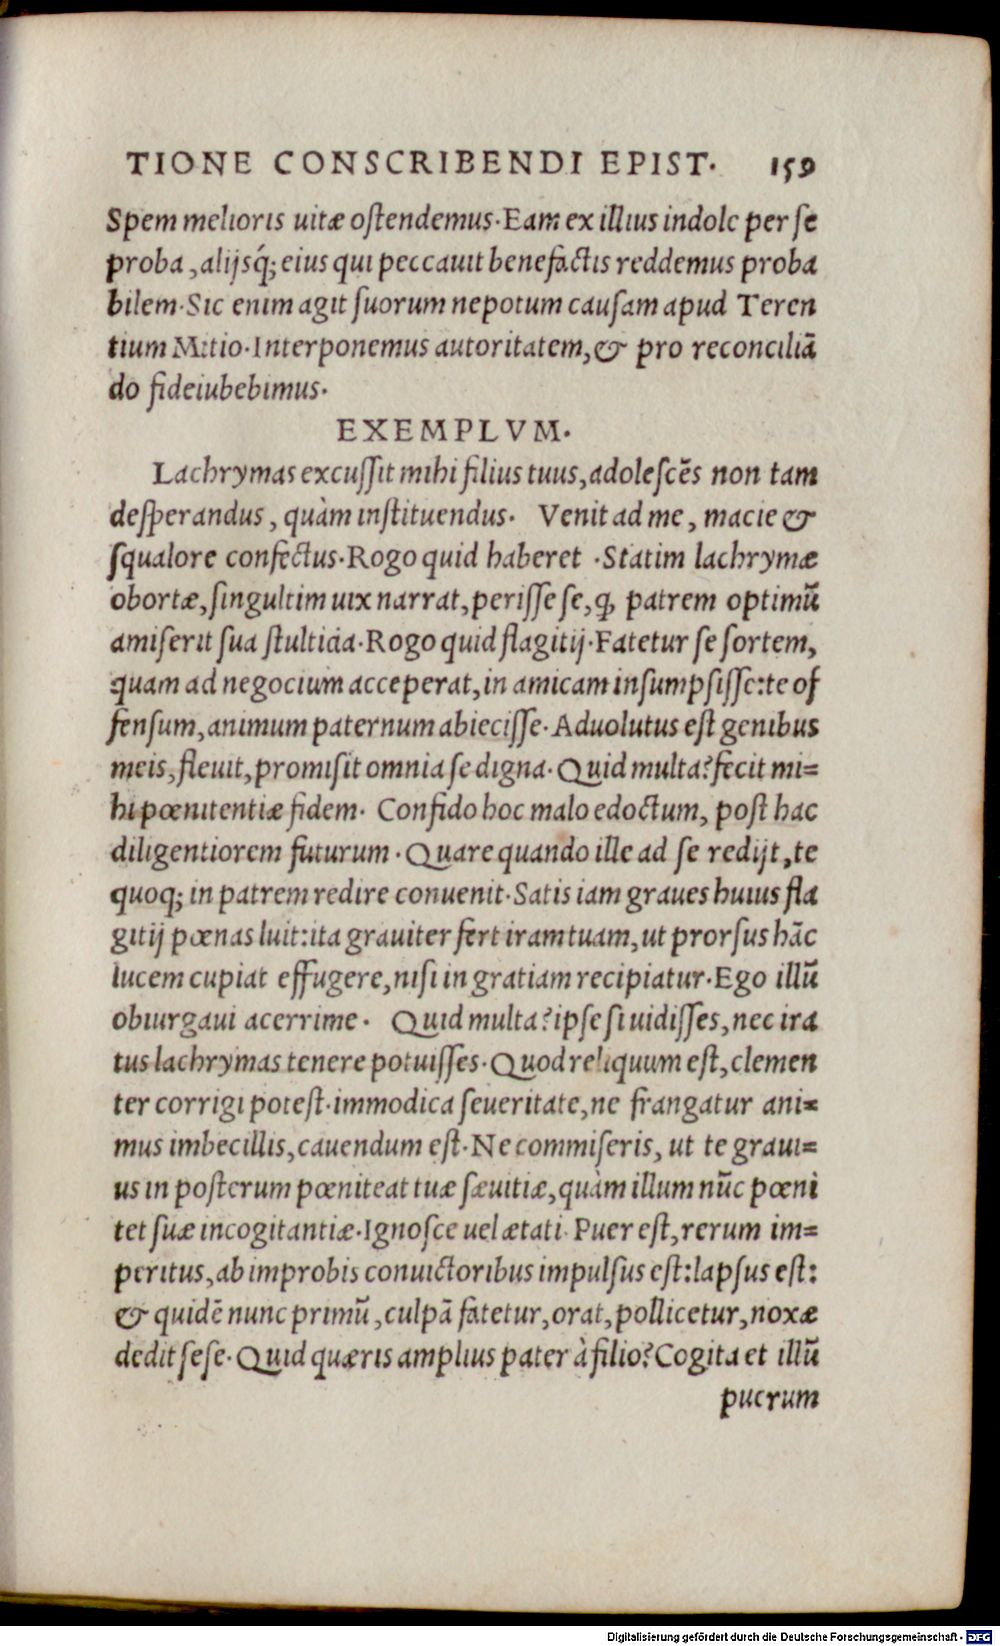 TIONE CONSCRIBENDI EPIST. 159
Spem melioris uitæ ostendemus. Eam ex illius indole per se
proba, alijsq́; eius qui peccauit benefactis reddemus proba
bilem. Sic enim agit suorum nepotum causam apud Teren
tium Mitio. Interponemus autoritatem, & pro reconciliā
do fideiubebimus.
EXEMPLVM.
Lachrymas excussit mihi filius tuus, adolescēs non tam
desperandus, quàm instituendus. Venit ad me, macie &
squalore confectus. Rogo quid haberet. Statim lachrymæ
obortæ, singultim uix narrat, perisse se, ꝙ patrem optimū
amiserit sua stulticia. Rogo quid flagitij. Fatetur se sortem,
quam ad negocium acceperat, in amicam insumpsisse: te of
fensum, animum paternum abiecisse. Aduolutus est genibus
meis, fleuit, promisit omnia se digna. Quid multa? fecit mi=
hi pœnitentiæ fidem. Confido hoc malo edoctum, post hac
diligentiorem futurum. Quare quando ille ad se redijt, te
quoq; in patrem redire conuenit. Satis iam graues huius fla
gitij pœnas luit: ita grauiter fert iram tuam, ut prorsus hāc
lucem cupiat effugere, nisi in gratiam recipiatur. Ego illū
obiurgaui acerrime. Quid multa? ipse si uidisses, nec ira
tus lachrymas tenere potuisses. Quod reliquum est, clemen
ter corrigi potest. immodica seueritate, ne frangatur ani=
mus imbecillis, cauendum est. Ne commiseris, ut te graui=
us in posterum pœniteat tuæ sæuitiæ, quàm illum nūc pœni
tet suæ incogitantiæ. Ignosce uel ætati. Puer est, rerum im=
peritus, ab improbis conuictoribus impulsus est: lapsus est:
& quidē nunc primū, culpā fatetur, orat, pollicetur, noxæ
dedit sese. Quid quæris amplius pater à filio? Cogita et illū
puerum
Digitalisierung gefördert durch die Deutsche Forschungsgemeinschaft - DFG